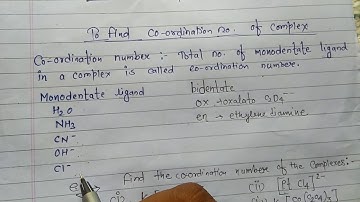 To find co-ordination no. of complex
Co-ordination number :- Total no. of monodentate ligand
in a complex is called co-ordination number.
Monodentate ligand bidentate
H₂O ox → oxalato
NH₃ en → ethylene diamine
CN⁻
OH⁻
Cl⁻
Find the coordination number of the Complexes:-